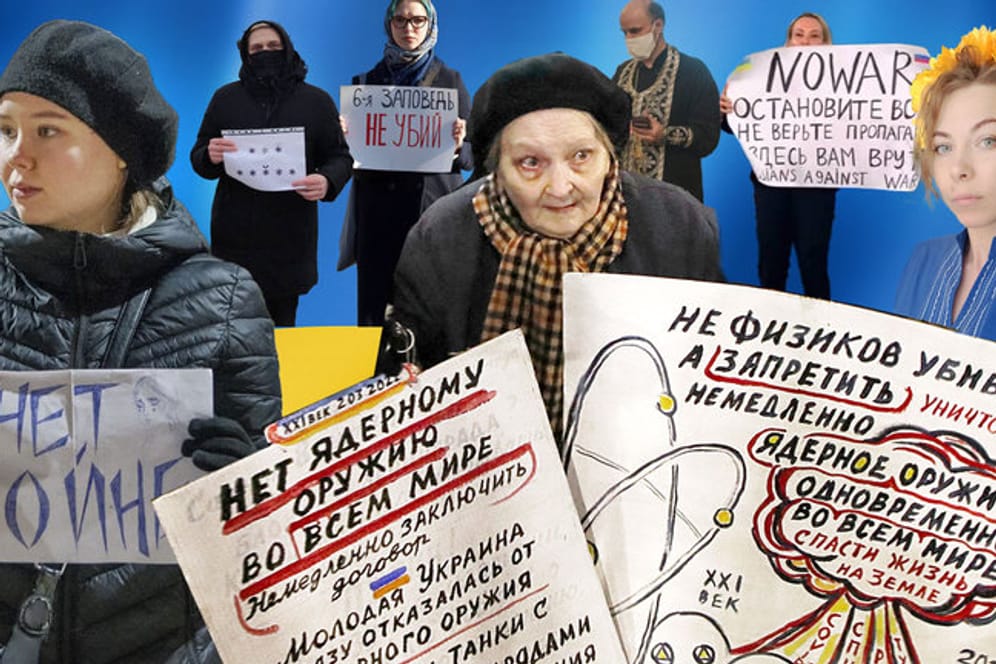 6-я ЗАПОВЕДЬ
НЕ УБИЙ
NO WAR
ОСТАНОВИТЕ ВО
НЕ ВЕРЬТЕ ПРОПАГА
ЗДЕСЬ ВАМ ВРУТ
SIANS AGAINST WAR
НЕТ
ОЙНЕ
XXI ВЕК 2.03.2022
НЕТ ЯДЕРНОМУ
ОРУЖИЮ
ВО ВСЕМ МИРЕ
Немедленно заключить
договор
МОЛОДАЯ УКРАИНА
АЗУ ОТКАЗАЛАСЬ ОТ
РНОГО ОРУЖИЯ
ТАНКИ С
РЯДАМИ
НИЯ
НЕ ФИЗИКОВ УБИВ
А ЗАПРЕТИТЬ УНИЧТО
НЕМЕДЛЕННО
ЯДЕРНОЕ ОРУЖИ
ОДНОВРЕМЕНН
ВО ВСЕМ МИРЕ
СПАСТИ ЖИЗНЬ
НА ЗЕМЛЕ
XXI
ВЕК